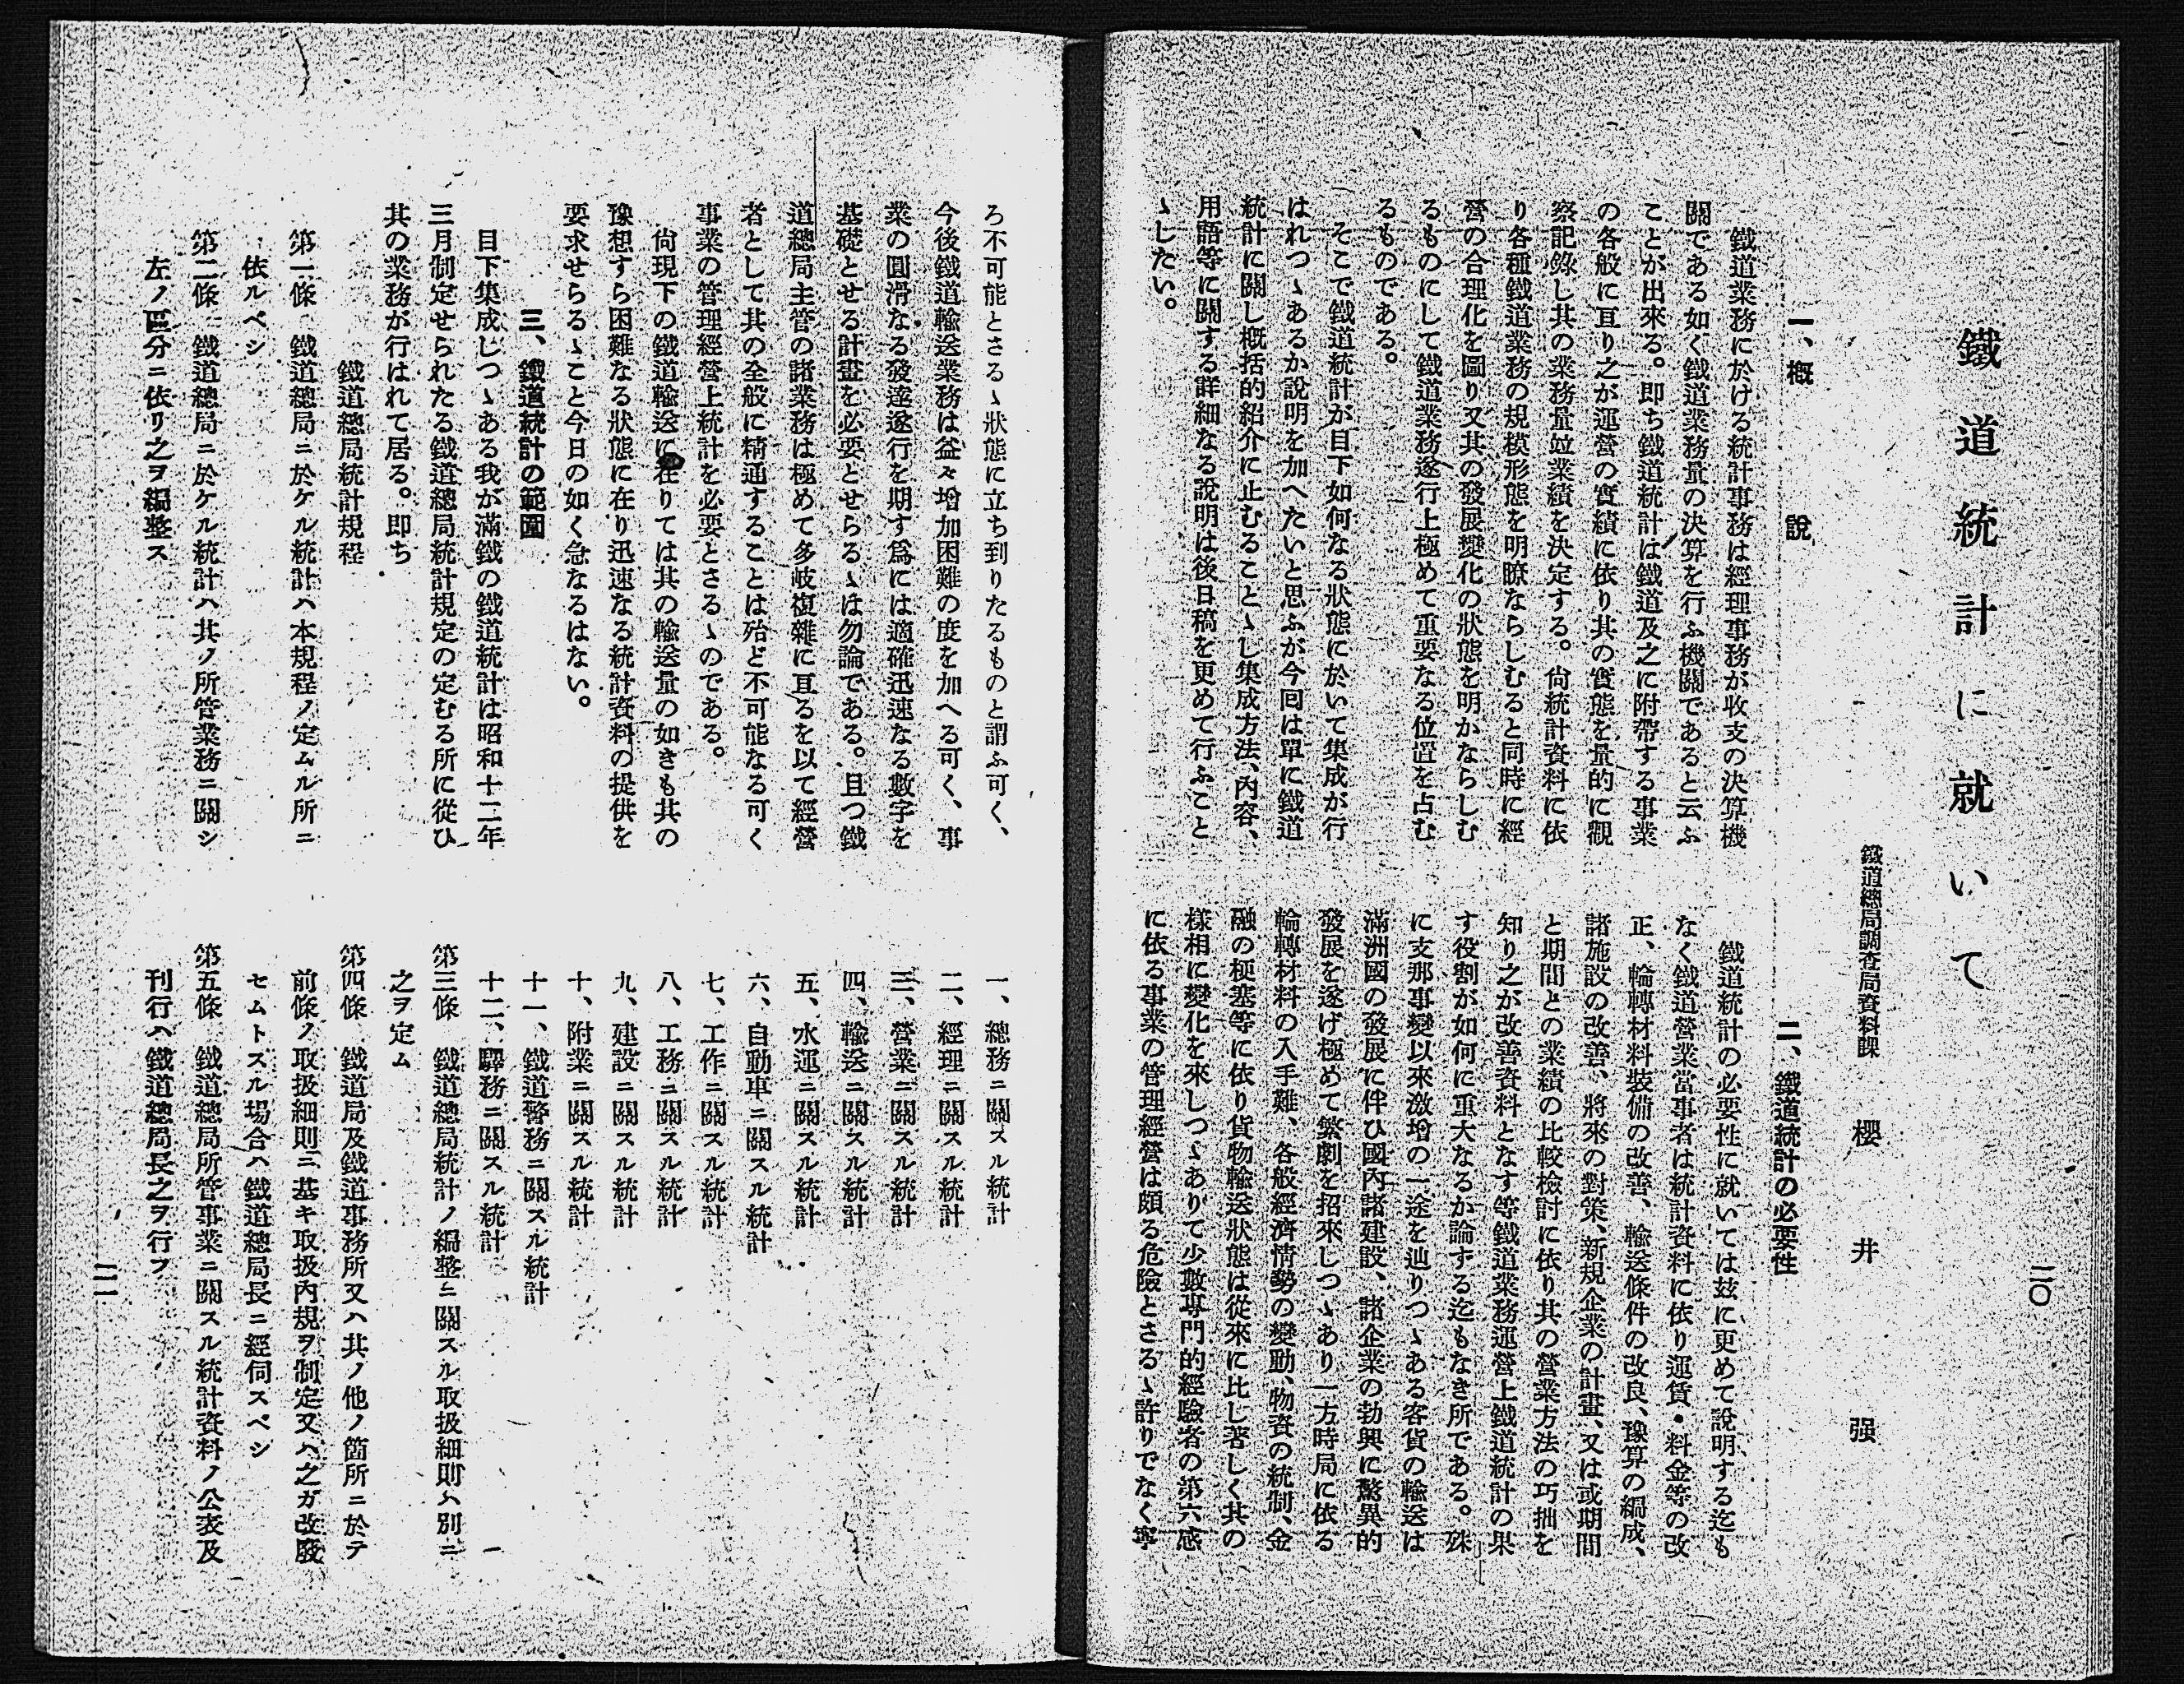 鐵道統計に就いて
鐵道總局調查局資料課　櫻井　强
一、概　說
鐵道業務に於ける統計事務は經理事務が收支の決算機
關である如く鐵道業務量の決算を行ふ機關であると云ふ
ことが出來る。卽ち鐵道統計は鐵道及之に附帶する事業
の各般に亙り之が運營の實績に依り其の實態を量的に觀
察記錄し其の業務量竝業績を決定する。尙統計資料に依
り各種鐵道業務の規模形態を明瞭ならしむると同時に經
營の合理化を圖り又其の發展變化の狀態を明かならしむ
るものにして鐵道業務遂行上極めて重要なる位置を占む
るものである。
そこで鐵道統計が目下如何なる狀態に於いて集成が行
はれつゝあるか說明を加へたいと思ふが今囘は單に鐵道
統計に關し槪括的紹介に止むることゝし集成方法、內容、
用語等に關する詳細なる說明は後日稿を更めて行ふこと
ゝしたい。
二、鐵道統計の必要性
鐵道統計の必要性に就いては玆に更めて說明する迄も
なく鐵道營業當事者は統計資料に依り運賃・料金等の改
正、輪轉材料裝備の改善、輸送條件の改良、豫算の編成、
諸施設の改善、將來の對策、新規企業の計畫、又は或期間
と期間との業績の比較檢討に依り其の營業方法の巧拙を
知り之が改善資料となす等鐵道業務運營上鐵道統計の果
す役割が如何に重大なるか論する迄もなき所である。殊
に支那事變以來激增の一途を辿りつゝある客貨の輸送は
滿洲國の發展に伴ひ國內諸建設、諸企業の勃興に驚異的
發展を遂げ極めて繁劇を招來しつゝあり一方時局に依る
輪轉材料の入手難、各般經濟情勢の變動、物資の統制、金
融の梗塞等に依り貨物輸送狀態は從來に比し著しく其の
樣相に變化を來しつゝありて少數專門的經驗者の第六感
に依る事業の管理經營は頗る危險とさるゝ許りでなく寧
二〇
ろ不可能とさるゝ狀態に立ち到りたるものと謂ふ可く、
今後鐵道輸送業務は益々增加困難の度を加へる可く、事
業の圓滑なる發達遂行を期す爲には適確迅速なる數字を
基礎とせる計畫を必要とせらるゝは勿論である。且つ鐵
道總局主管の諸業務は極めて多岐複雜に亙るを以て經營
者として其の全般に精通することは殆ど不可能なる可く
事業の管理經營上統計を必要とさるゝのである。
尙現下の鐵道輸送に在りては其の輸送量の如きも其の
豫想すら困難なる狀態に在り迅速なる統計資料の提供を
要求せらるゝこと今日の如く急なるはない。
三、鐵道統計の範圍
目下集成しつゝある我が滿鐵の鐵道統計は昭和十二年
三月制定せられたる鐵道總局統計規定の定むる所に從ひ
其の業務が行はれて居る。卽ち
鐵道總局統計規程
第一條　鐵道總局ニ於ケル統計ハ本規程ノ定ムル所ニ
依ルベシ
第二條　鐵道總局ニ於ケル統計ハ其ノ所管業務ニ關シ
左ノ區分ニ依リ之ヲ編整ス
一、總務ニ關スル統計
二、經理ニ關スル統計
三、營業ニ關スル統計
四、輸送ニ關スル統計
五、水運ニ關スル統計
六、自動車ニ關スル統計
七、工作ニ關スル統計
八、工務ニ關スル統計
九、建設ニ關スル統計
十、附業ニ關スル統計
十一、鐵道警務ニ關スル統計
十二、驛務ニ關スル統計
第三條　鐵道總局統計ノ編整ニ關スル取扱細則ハ別ニ
之ヲ定ム
第四條　鐵道局及鐵道事務所又ハ其ノ他ノ箇所ニ於テ
前條ノ取扱細則ニ基キ取扱內規ヲ制定又ハ之ガ改廢
セムトスル場合ハ鐵道總局長ニ經伺スベシ
第五條　鐵道總局所管事業ニ關スル統計資料ノ公表及
刊行ハ鐵道總局長之ヲ行フ
二一